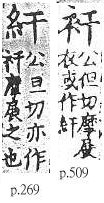 䊻
公旦切亦作
衦摩展之也
p.269
衦
公但切摩展
衣或作䊻
p.509